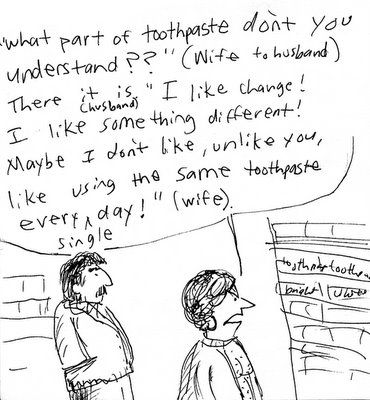 "What part of toothpaste don't you
understand??" (Wife to husband)
There it is (husband) "I like change!
I like something different!
Maybe I don't like, unlike you,
like using the same toothpaste
every single day!" (wife).
bright